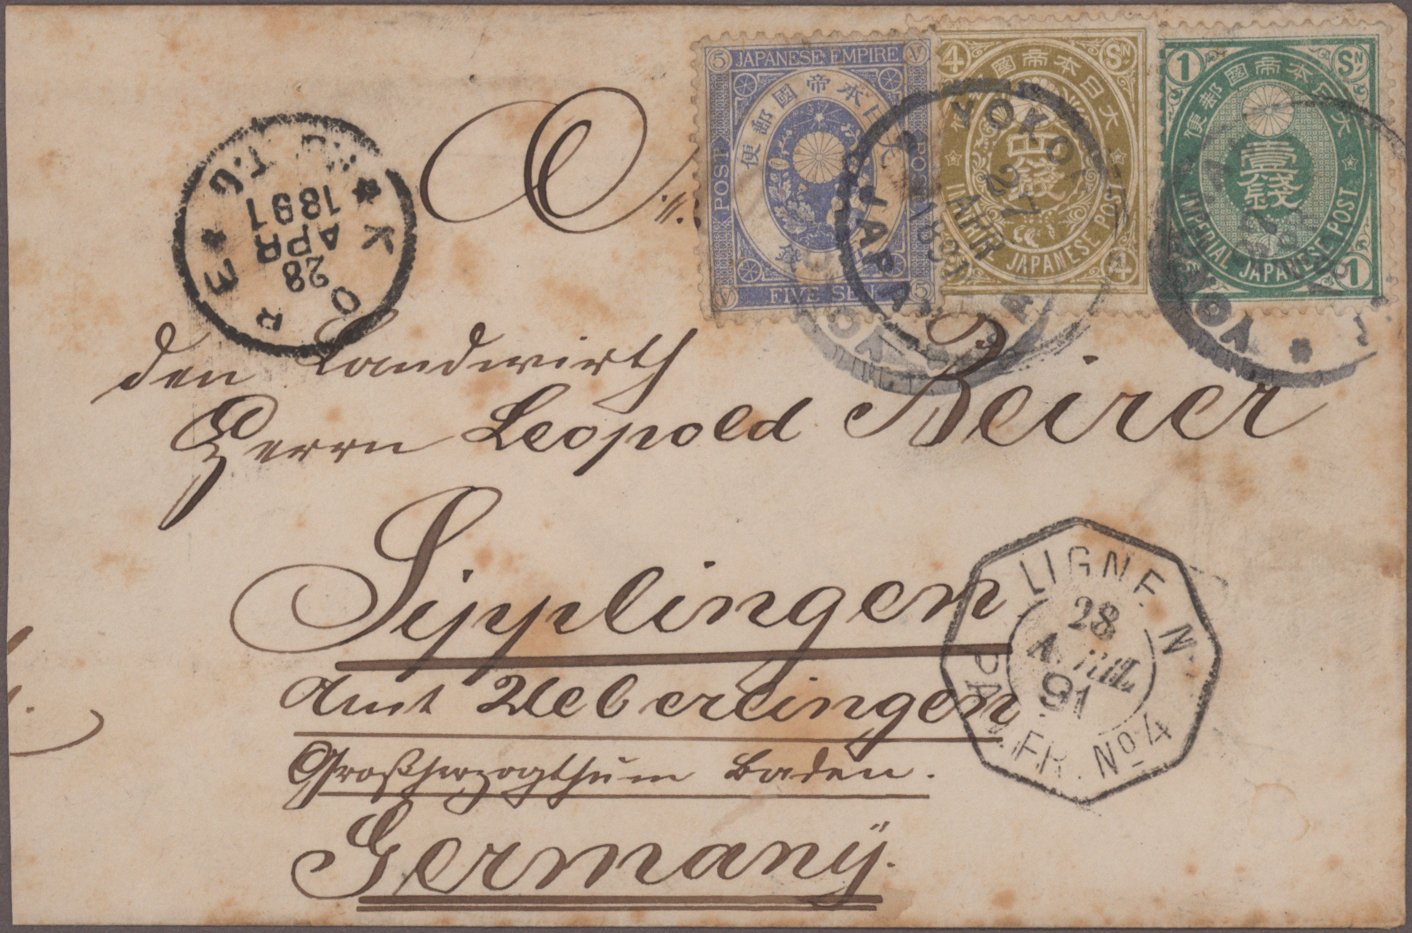 5 JAPANESE EMPIRE V
大日本帝國郵便
POST
FIVE SEN
V
5
4 Sᴺ
大日本帝國郵便
四錢
IMPERIAL JAPANESE POST
4
1 Sᴺ
大日本帝國郵便
壹錢
IMPERIAL JAPANESE POST
1
YOKO
27
APR
JAPAN
KOBE
28
APR
1891
den Landwirth
Herrn Leopold Beirer
Sipplingen
Amt Ueberlingen
Großherzogthum Baden.
Germany.
LIGNE N
28
AVRIL
91
PAQ. FR. Nº 4